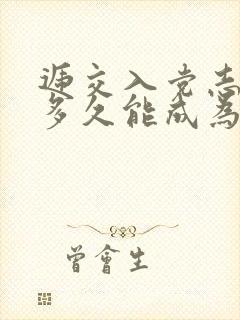 递交入党志
多久能成为
曾會生